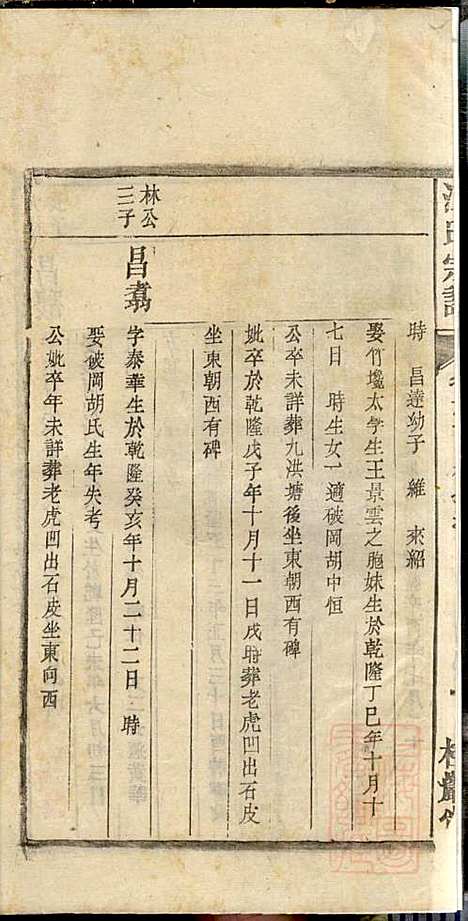 氏宗譜
時 昌達幼子 維 來紹
娶竹墩太學生王景雲之胞妹生於乾隆丁巳年十月十
七日 時生女一適破岡胡中恒
公卒未詳葬九洪塘後坐東朝西有碑
妣卒於乾隆戊子年十月十一日戌時葬老虎凹出石皮
坐東朝西有碑
林公
三子
昌翥
字泰華生於乾隆癸亥年十月二十二日 時
娶破岡胡氏生年失考
公妣卒年未詳葬老虎凹出石皮坐東向西